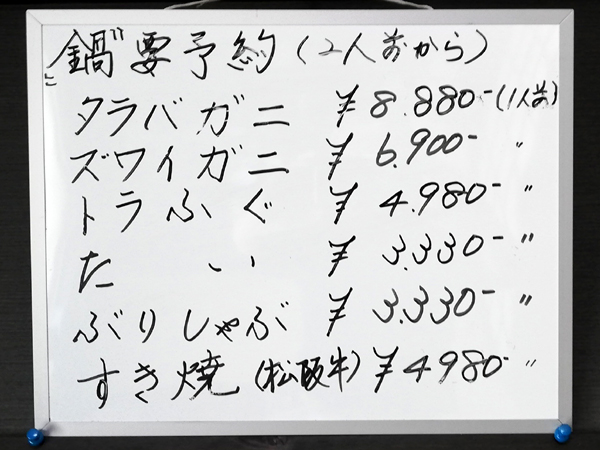 鍋 要予約 (2人前から)
タラバガニ ¥8.880- (1人前)
ズワイガニ ¥6.900- 〃
トラふぐ ¥4.980- 〃
たい ¥3.330- 〃
ぶりしゃぶ ¥3.330- 〃
すき焼 (松阪牛) ¥4980- 〃